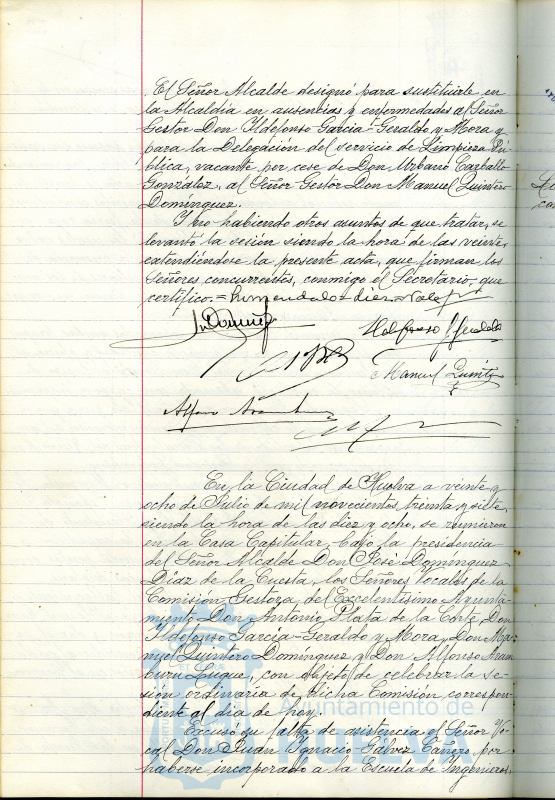 El Señor Alcalde designó para sustituirle en
la Alcaldía en ausencias y enfermedades al Señor
Gestor Don Ildefonso Garcia-Geraldo y Mora y
para la Delegación del servicio de Limpieza Pú-
blica, vacante por cese de Don Urbano Carballo
González, al Señor Gestor Don Manuel Quintero
Domínguez.
Y no habiendo otros asuntos de que tratar, se
levantó la sesión siendo la hora de las veinte,
extendiéndose la presente acta, que firman los
Señores concurrentes, conmigo el Secretario, que
certifico.=
Manuel Quint
Alfonso
En la Ciudad de Huelva a veinte y
ocho de Julio de mil novecientos treinta y siete,
siendo la hora de las diez y ocho, se reunieron
en la Casa Capitular, bajo la presidencia
del Señor Alcalde Don José Domínguez
Díaz de la Cuesta, los Señores Vocales de la
Comisión Gestora del Excelentísimo Ayunta-
miento Don Antonio Plata de la Corte, Don
Ildefonso Garcia-Geraldo y Mora, Don Ma-
nuel Quintero Domínguez y Don Alfonso Aram
buru Luque, con objeto de celebrar la se-
sión ordinaria de dicha Comisión correspon-
diente al día de hoy.
Ayuntamiento de
HUELVA
Excusó su falta de asistencia el Señor Vo-
cal Don Juan Ignacio Gálvez Cañero, por
haberse incorporado a la Escuela de Ingenieros.